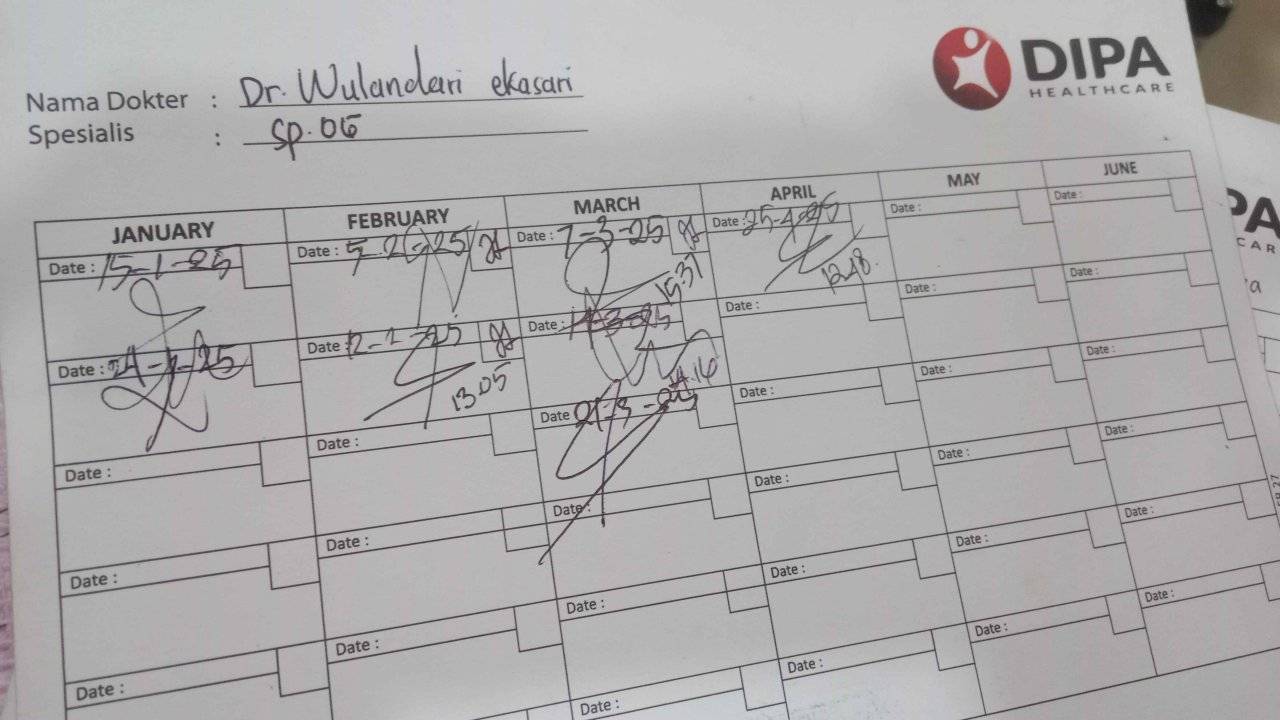 DIPA
HEALTHCARE
Nama Dokter : Dr. Wulandari ekasari
Spesialis : Sp.OG
JANUARY FEBRUARY MARCH APRIL MAY JUNE
Date : 15-1-25 Date : 5-2-25 Date : 7-3-25 Date : 25-4-25 Date : Date :
15.37 12.48
Date : 24-1-25 Date 12-2-25 Date : 14-3-25 Date : Date : Date :
13.05 14.16
Date : Date : Date 21-3-25 Date : Date : Date :
Date : Date : Date : Date : Date : Date :
Date : Date : Date : Date : Date : Date :
Date : Date : Date : Date :
PA
CAR